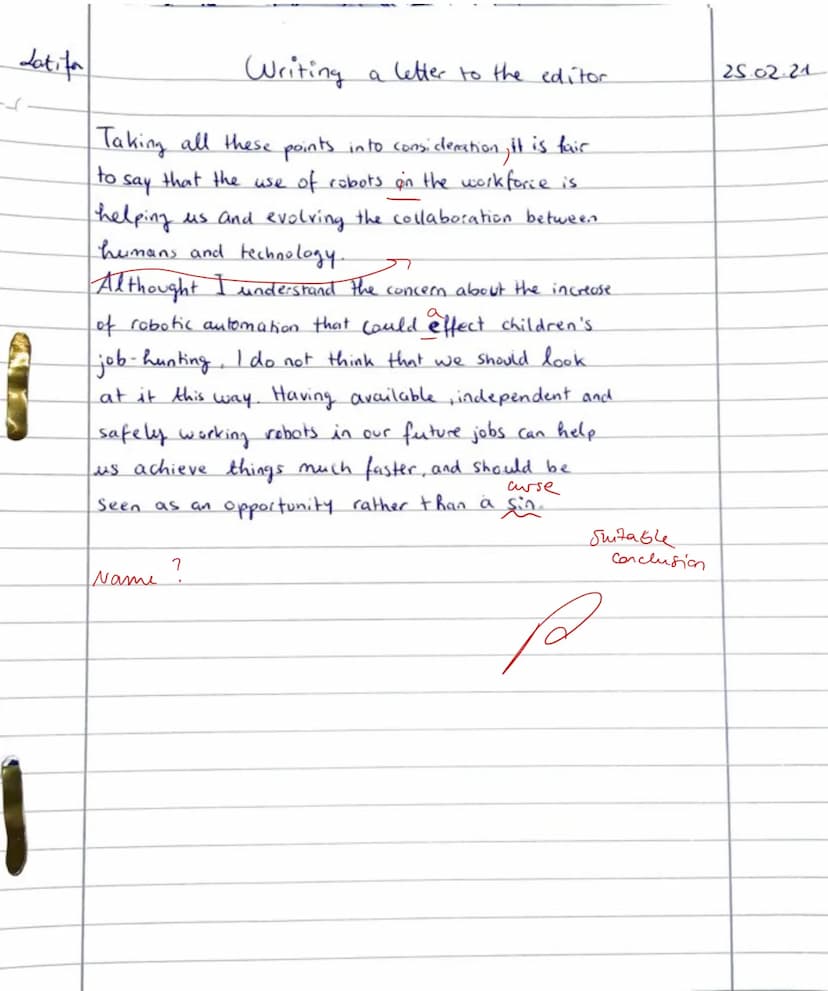 Latifa
Writing a letter to the editor
25.02.21
Taking all these points into consideration, it is fair
to say that the use of robots in the workforce is
helping us and evolving the collaboration between
humans and technology.
Althought I understand the concern about the increase
a
of robotic automation that could effect children's
job-hunting, I do not think that we should look
at it this way. Having available, independent and
safely working robots in our future jobs can help
us achieve things much faster, and should be
curse
seen as an opportunity rather than a sin.
suitable
conclusion
Name ?